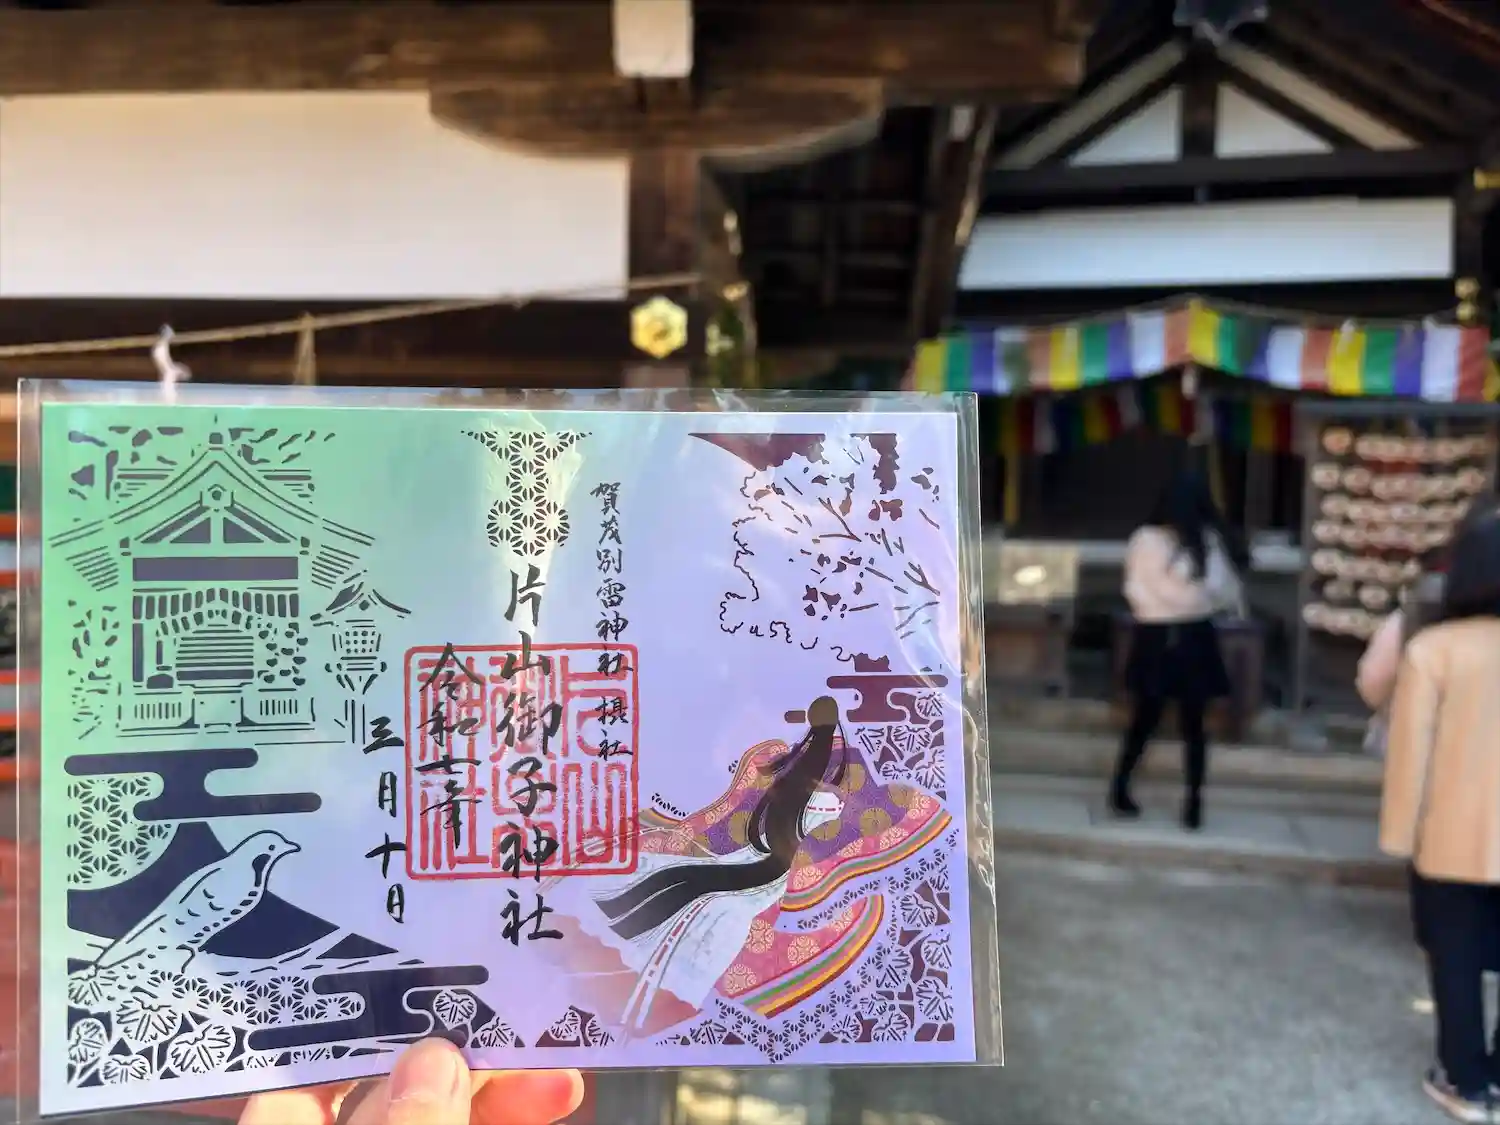 賀茂別雷神社 摂社
片山御子神社
令和七年
三月十日
片山御子神社